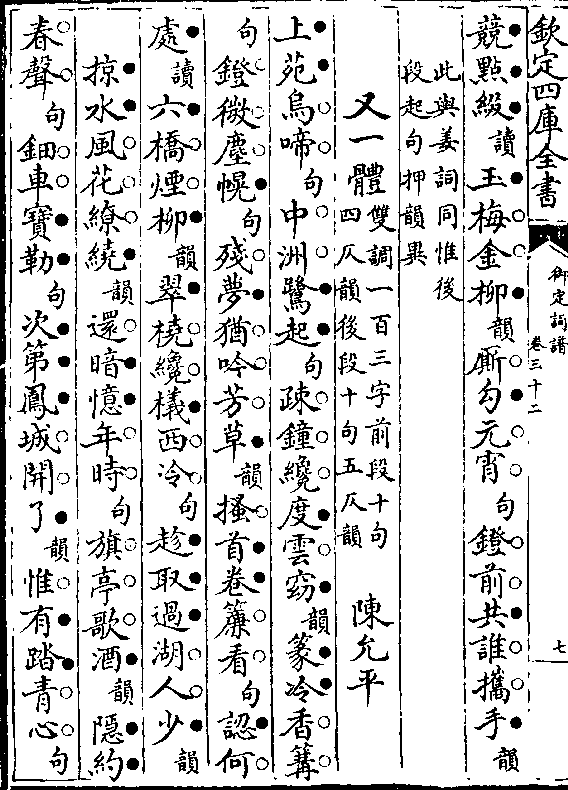 欽定四庫全書
御定詞譜
卷三十二
七
競點綴讀玉梅金柳韻厮勾元宵句鐙前共誰攜手韻
此與姜詞同惟後
段起句押韻異
又一體雙調一百三字前段十句
四仄韻後段十句五仄韻
陳允平
上苑烏啼句中洲鷺起句疎鐘纔度雲窈韻篆冷香篝
句鐙微塵幌句殘夢猶吟芳草韻搔首卷簾看句認何
處讀六橋煙柳韻翠橈纔檥西泠句趁取過湖人少韻
掠水風花繚繞韻還暗憶年時句旗亭歌酒韻隱約
春聲句鈿車寶勒句次第鳳城開了韻惟有踏青心句